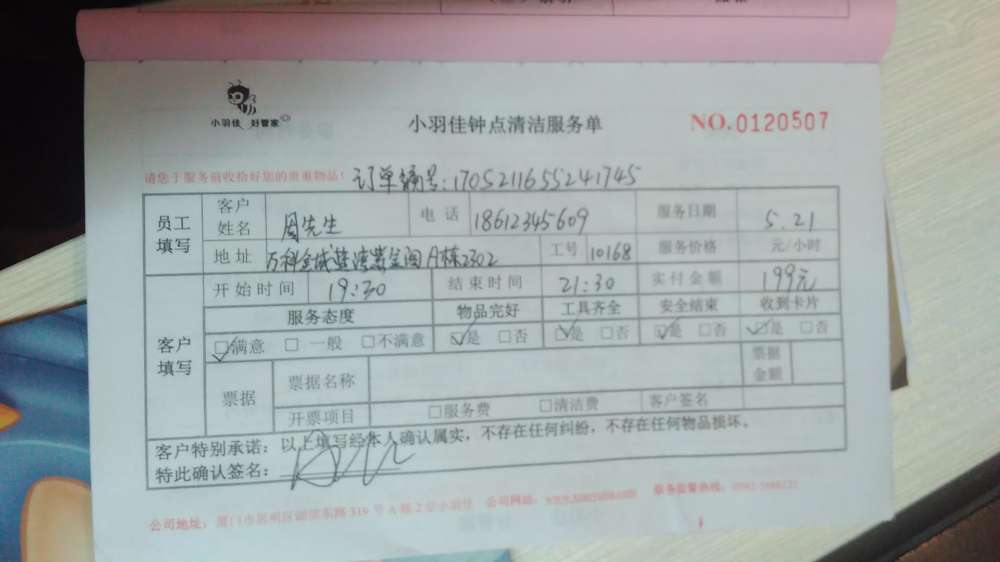 小羽佳 好管家
小羽佳钟点清洁服务单
NO.0120507
请您于服务前收拾好您的贵重物品!
订单编号:170521165524174​5
员工填写
客户姓名 周先生 电话 18612345609 服务日期 5.21
地址 A栋2302 工号 10168 服务价格 元/小时
客户填写
开始时间 19:30 结束时间 21:30 实付金额 199元
服务态度 物品完好 工具齐全 安全结束 收到卡片
□满意 □一般 □不满意 □是 □否 □是 □否 □是 □否 □是 □否
票据 票据名称 票据金额
开票项目 □服务费 □清洁费 客户签名
客户特别承诺:以上填写经本人确认属实,不存在任何纠纷,不存在任何物品损坏。
特此确认签名:
公司地址:厦门市思明区湖滨东路319号A栋2层小羽佳 公司网站: 服务监督热线: